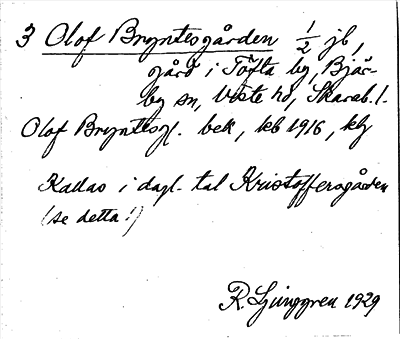 3 Olof Bryntesgården 1/2 jb,
gård i Töfta by, Bjär-
by sn, Viste hd, Skarab. l.
Olof Bryntesg. bek, kb 1916, kly
Kallas i dagl. tal Kristoffersgården
(se detta!)
R. Ljunggren 1929